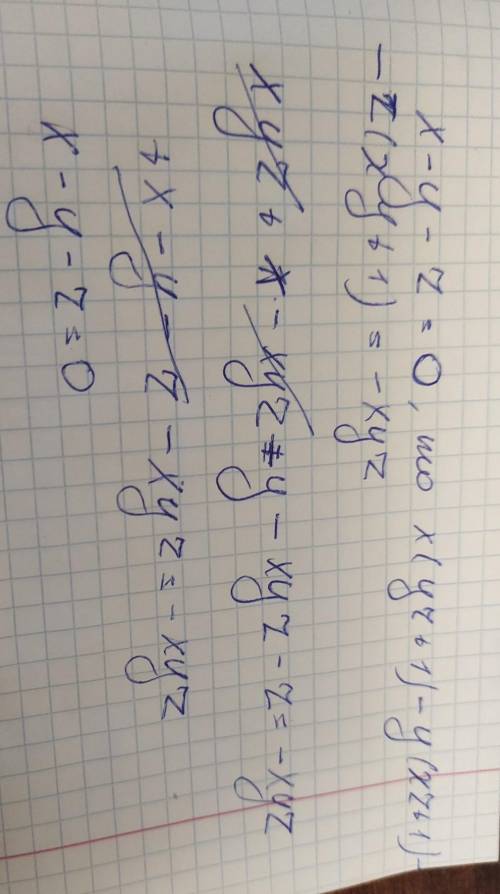 x - y - z = 0, що x(yz+1) - y(xz+1) -
- z(xy + 1) = - xyz
xyz + x - xyz - y - xyz - z = - xyz
+ x - y - z - xyz = - xyz
x - y - z = 0